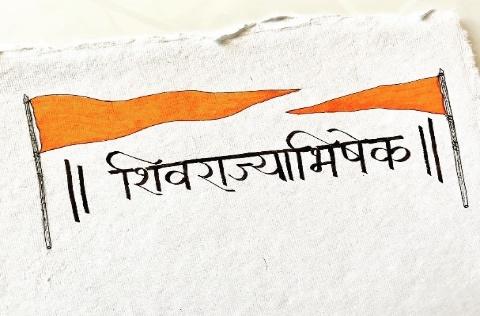 || शिवराज्याभिषेक ||